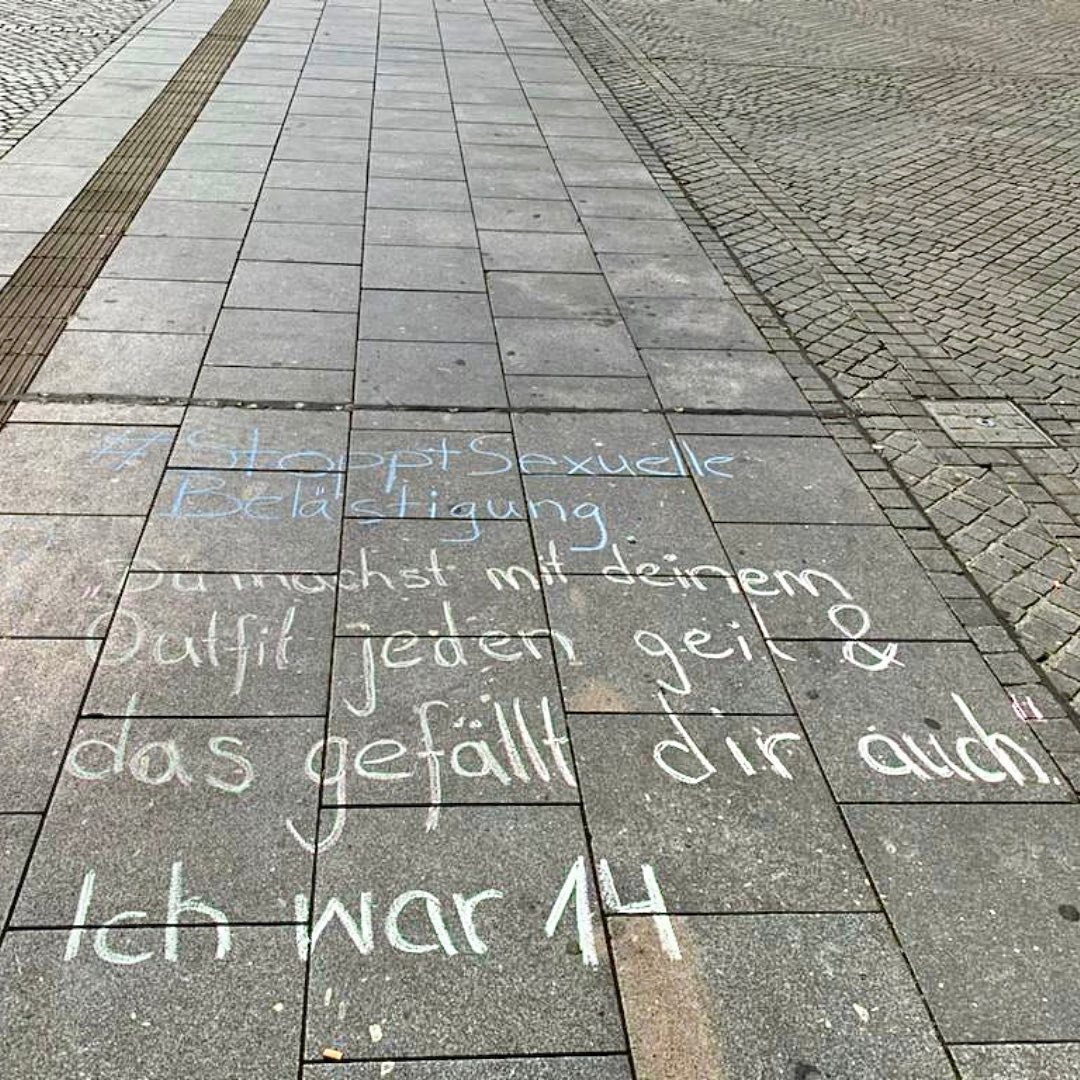 #StopptSexuelle
Belästigung
„Du machst mit deinem
Outfit jeden geil &
das gefällt dir auch."
Ich war 14